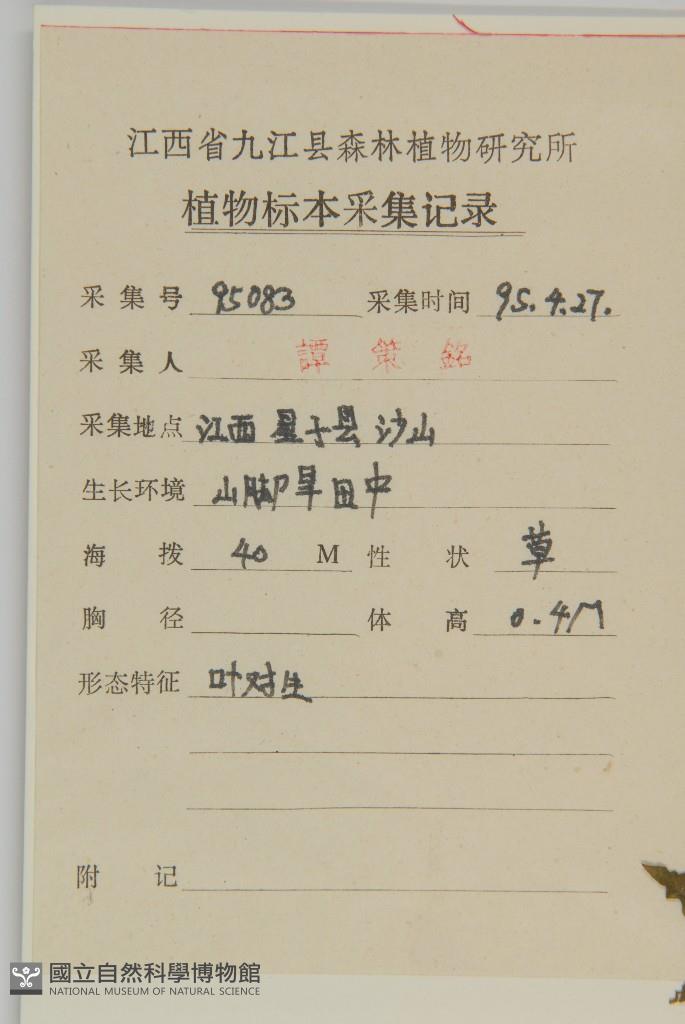 江西省九江县森林植物研究所
植物标本采集记录
采集号 95083 采集时间 95.4.27.
采集人 譚策銘
采集地点 江西星子县沙山
生长环境 山脚旱田中
海拨 40 M 性状 草
胸径 体高 0.4M
形态特征 叶对生
附记
國立自然科學博物館
NATIONAL MUSEUM OF NATURAL SCIENCE